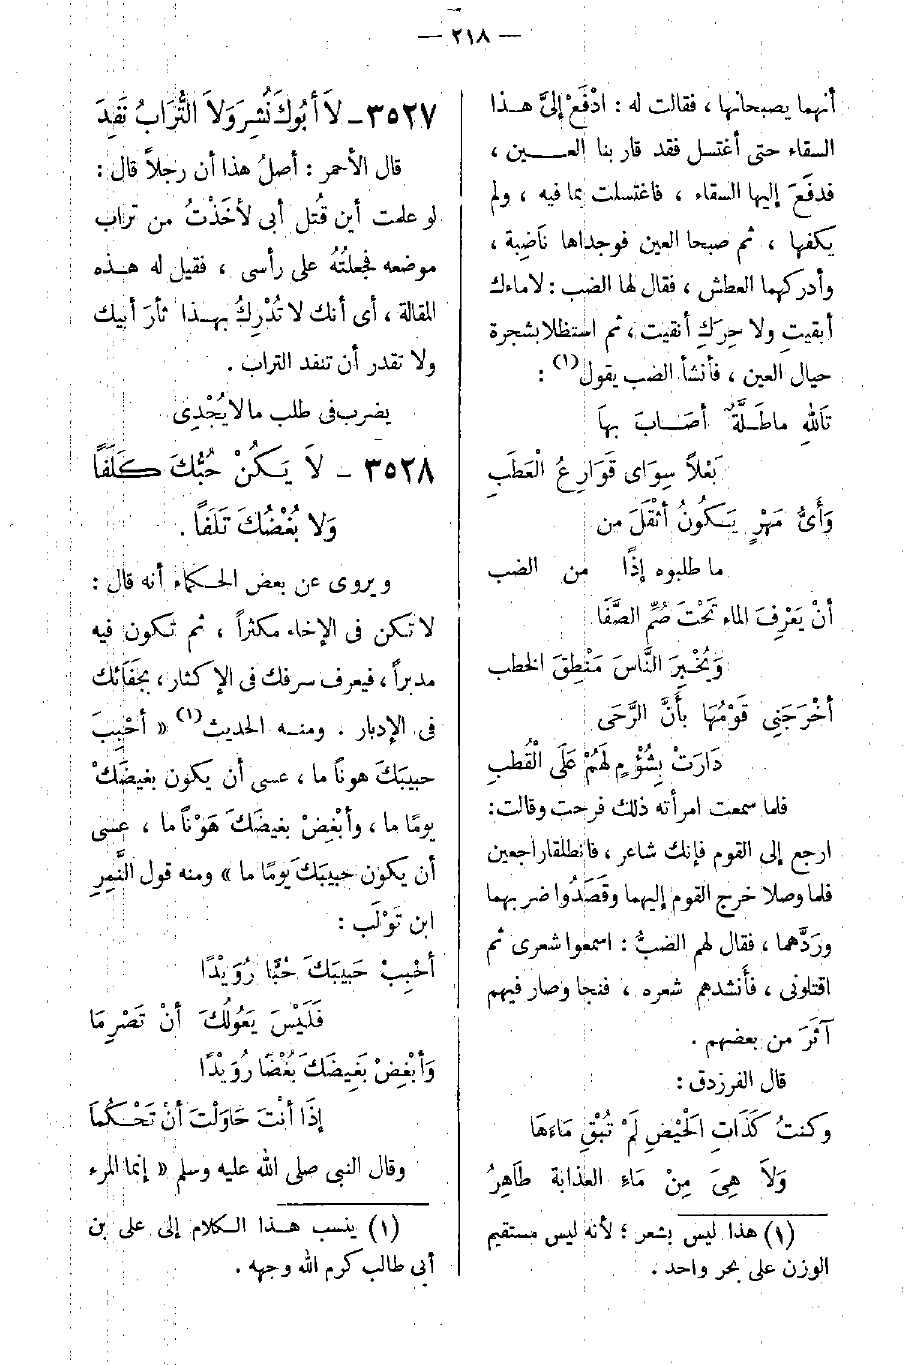 — ٢١٨ —
أنهما يصبحانها ، فقالت له : ادْفَعْ إلىَّ هـذا
السقاء حتى أغتسل فقد قاربنا العـــين ،
فدفَعَ إليها السقاء ، فاغتسلت بما فيه ، ولم
يكفها ، ثم صبحا العين فوجداها نَاضِبة ،
وأدركهما العطش ، فقال لها الضب : لاماءك
أبقيتِ ولا حِرَكِ أنقيت ، ثم استظلا بشجرة
حيال العين ، فأنشأ الضب يقول(١) :
تَاللهِ ماطَلَّةٌ أصَـابَ بِهاَ
بَعْلاً سِوَاى قَوَارِعُ الْعَطَبِ
وَأَىُّ مَهْرٍ يَـكُونُ أَثْقَلَ من
ما طلبوه إذًا من الضب
أنْ يَعْرِفَ الماء تَحْتَ صُمِّ الصَّفَا
وَيُخْبِرَ النَّاسَ مَنْطِقَ الخطب
أخْرَجَنِى قَوْمُهَا بِأَنَّ الرَّحَى
دَارَتْ بِشُؤْمٍ لَهُمْ عَلَى الْقُطبِ
فلما سمعت امرأته ذلك فرحت وقالت:
ارجع إلى القوم فإنك شاعر ، فانطلقا راجعين
فلما وصلا خرج القوم إليهما وقَصَدُوا ضربهما
وردَّهما ، فقال لهم الضبُّ : اسمعوا شعرى ثم
اقتلونى ، فأنشدهم شعره ، فنجا وصار فيهم
آثَرَ من بعضهم .
قال الفرزدق :
وكنتُ كَذَاتِ الْحَيْضِ لَمْ تُبْقِ مَاءَهَا
وَلاَ هِىَ مِنْ مَاءِ العَذَابة طَاهِرُ
(١) هذا ليس بشعر ؛ لأنه ليس مستقيم
الوزن على بحر واحد .
٣٥٢٧ـ لاَ أَبُوكَ نُشِرَ وَلاَ التُّرَابُ نَفِدَ
قال الأحمر : أصلُ هذا أن رجلاً قال :
لو علمت أين قُتل أبى لأخَذْتُ من تراب
موضعه فجعلتُهُ على رأسى ، فقيل له هـذه
المقالة ، أى أنك لا تُدْرِكُ بهـذا ثأرَ أبيك
ولا تقدر أن تنفد التراب .
يضرب فى طلب ما لا يُجْدِى
٣٥٢٨ ـ لاَ يَـكُنْ حُبُّكَ كَلَفاً
وَلا بُغْضُكَ تَلَفاً .
ويروى عن بعض الحكماء أنه قال :
لا تكن فى الإخاء مكثراً ، ثم تكون فيه
مدبراً ، فيعرف سرفك فى الإكثار ، بجَفَائك
فى الإدبار . ومنـه الحديث(١) « أحْبِبْ
حبيبَكَ هوناً ما ، عسى أن يكون بغيضَكْ
يومًا ما ، وأبْغِضْ بغيضَكَ هَوْناً ما ، عسى
أن يكون حبيبَكَ يومًا ما » ومنه قول النَّمِرِ
ابن تَوْلَب :
أحْبِبْ حَبِيبَكَ حُبًّا رُوَيْدًا
فَلَيْسَ يَعُولُكَ أنْ تَصْرِمَا
وَأبْغِضْ بَغِيضَكَ بُغْضًا رُوَيْدًا
إذَا أنْتَ حَاوَلْتَ أنْ تَحْـكُمَا
وقال النبى صلى الله عليه وسلم « إنما المرء
(١) ينسب هـذا الـكلام إلى على بن
أبى طالب كرم الله وجهه .